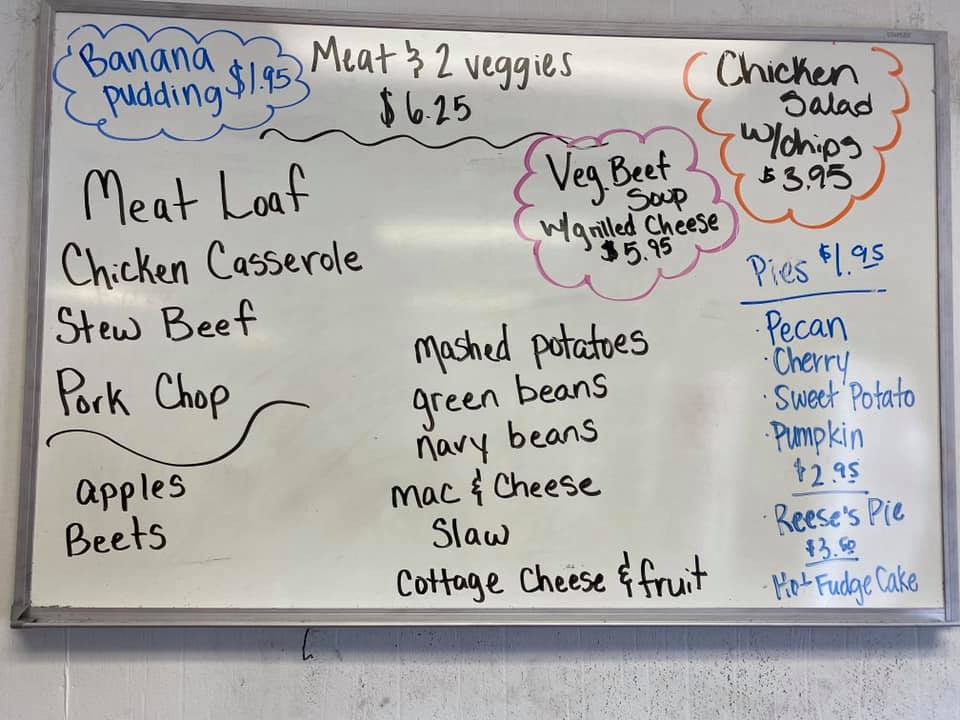 Banana
pudding $1.95
Meat & 2 veggies
$6.25
Chicken
Salad
w/chips
$3.95
Veg. Beef
Soup
w/grilled Cheese
$5.95
Meat Loaf
Chicken Casserole
Stew Beef
Pork Chop
apples
Beets
mashed potatoes
green beans
navy beans
mac & Cheese
Slaw
Cottage Cheese & fruit
Pies $1.95
· Pecan
· Cherry
· Sweet Potato
· Pumpkin
$2.95
· Reese's Pie
$3.50
· Hot Fudge Cake